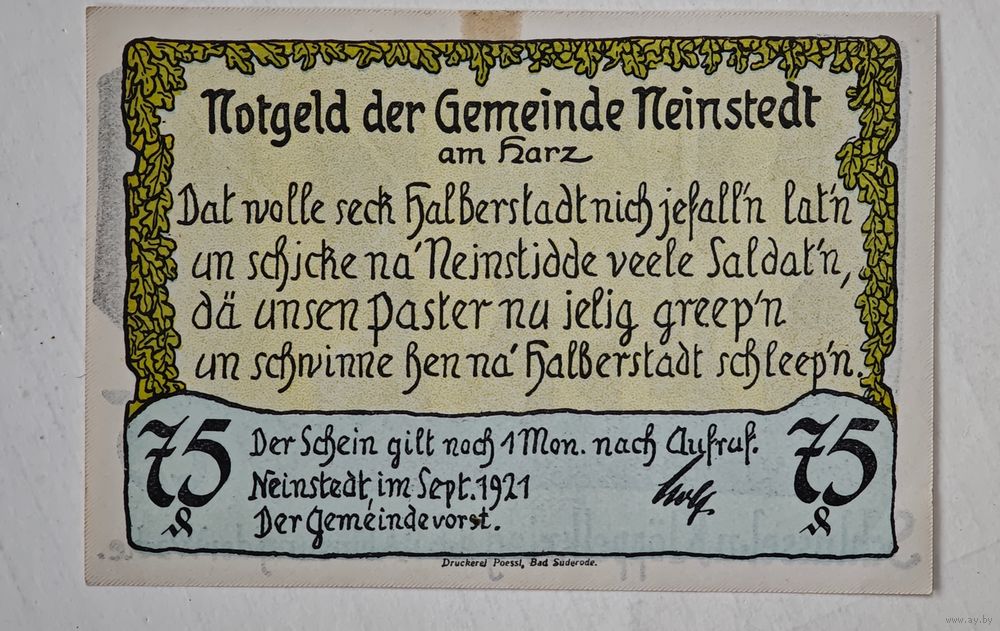 Notgeld der Gemeinde Neinstedt
am Harz
Dat wolle seck Halberstadt nich jefall'n lat'n
un schicke na' Neinstidde veele Saldat'n,
dä unsen Paster nu jelig greep'n
un schwinne hen na' Halberstadt schleep'n.
75 Der Schein gilt noch 1 Mon. nach Aufruf. 75
Neinstedt, im Sept. 1921
Der Gemeindevorst.
Druckerei Poessl, Bad Suderode.
www.ay.by